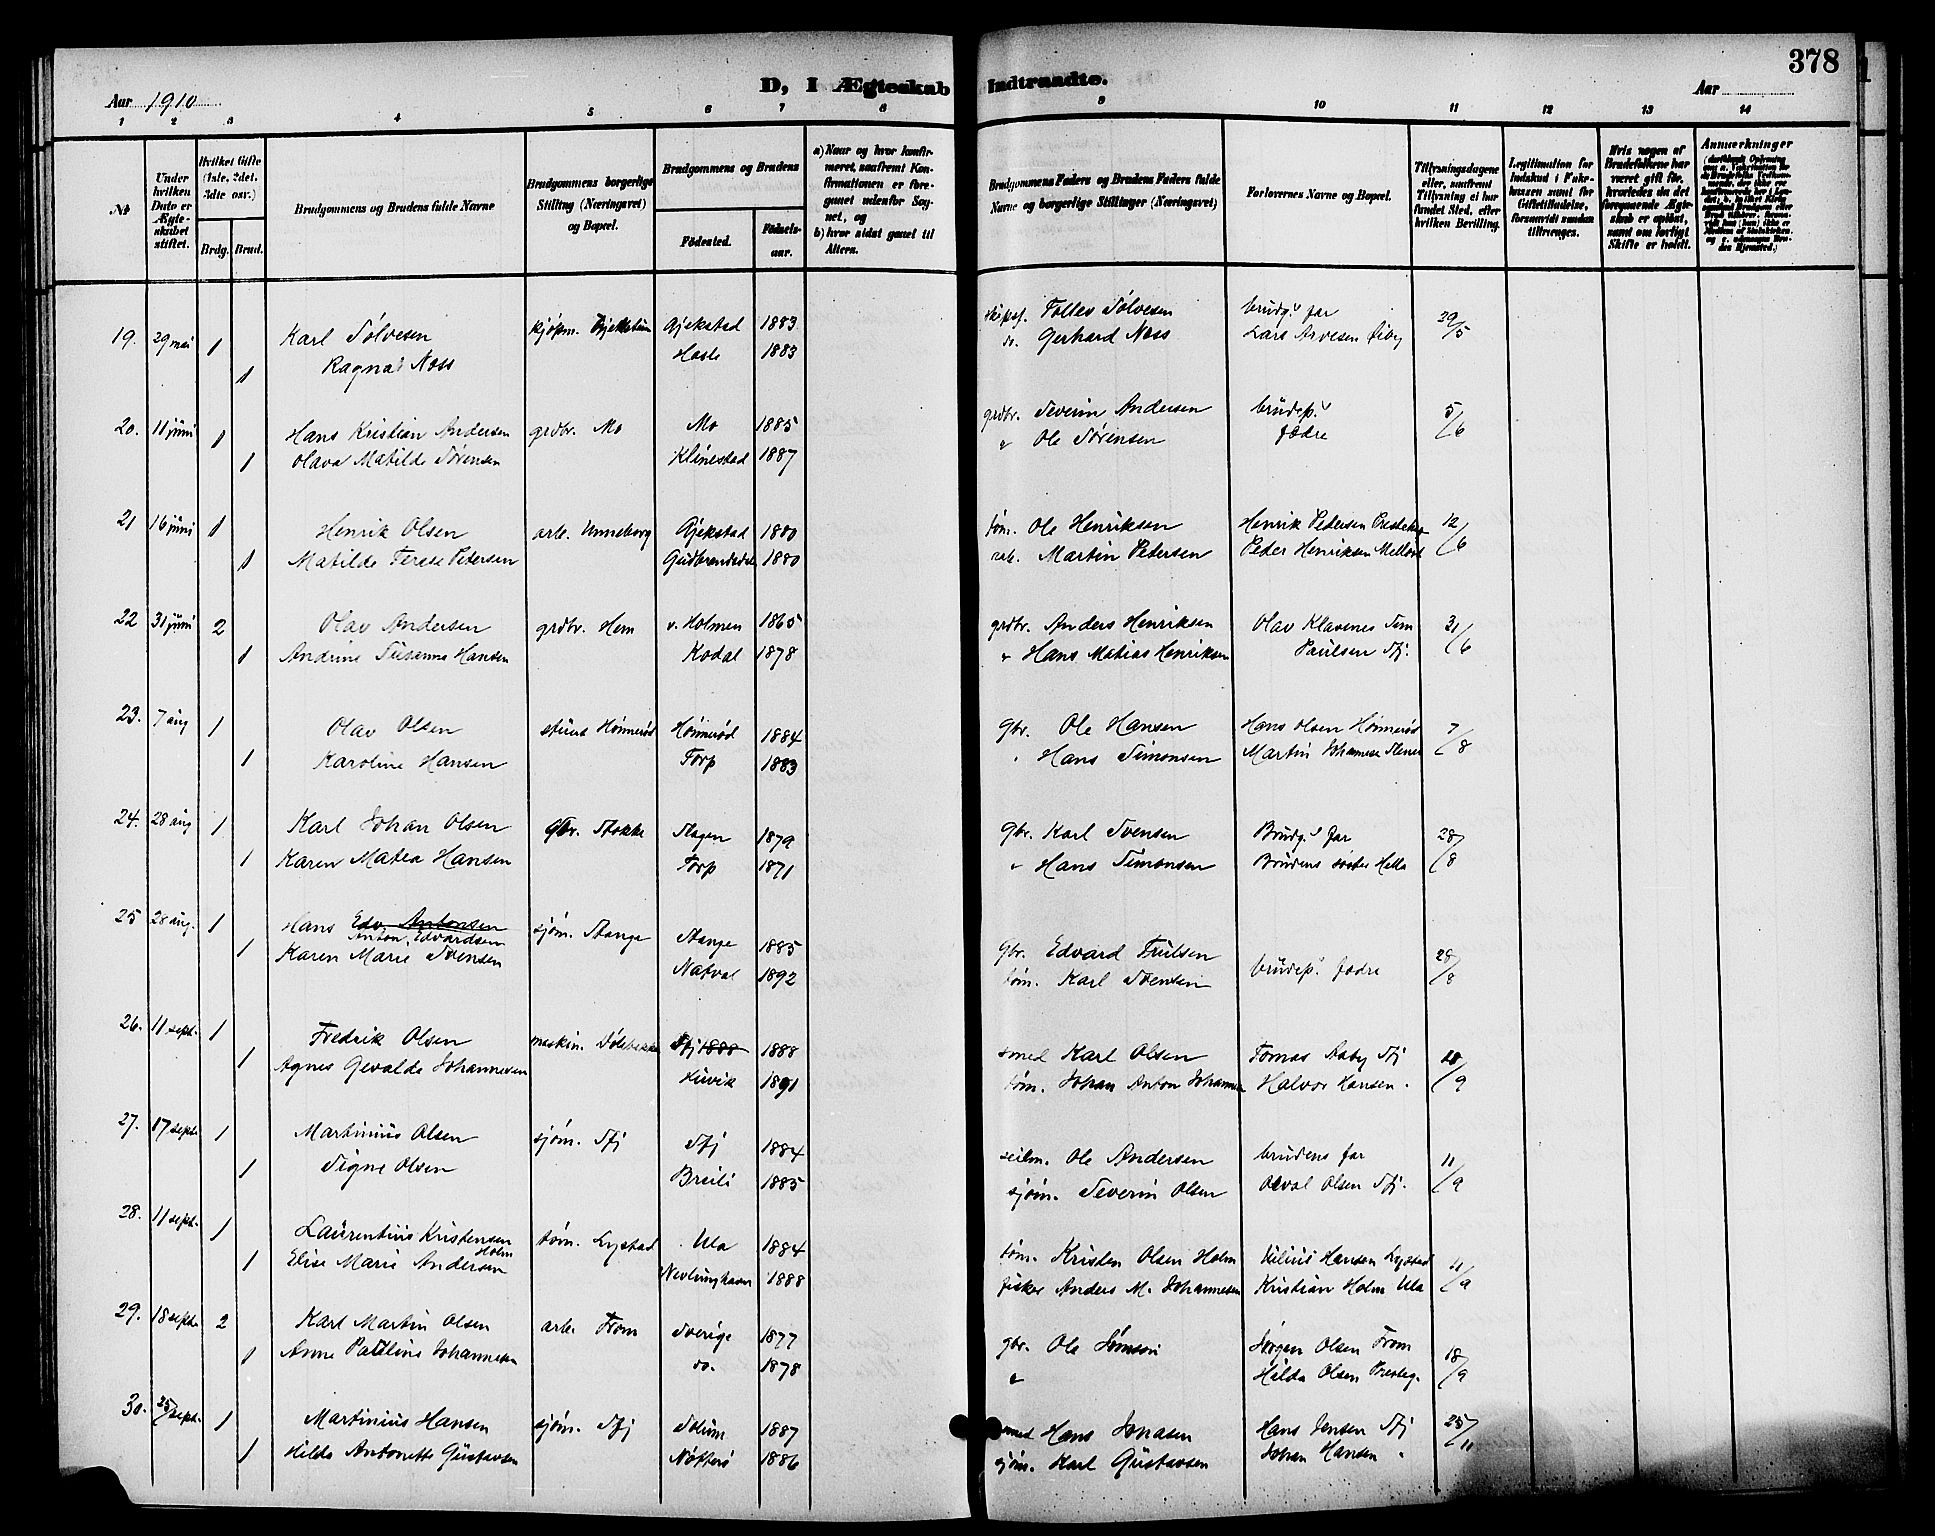 378
D, I Ægteskab Indtraadte.
Aar 1910
Aar
1 2 3 4 5 6 7 8 9 10 11 12 13 14
No
Under hvilken Dato er Ægteskabet stiftet.
Hvilket Gifte (1ste, 2det, 3die osv.)
Brdg. Brud.
Brudgommens og Brudens fulde Navne
Brudgommens borgerlige Stilling (Næringsvei) og Bopæl.
Brudgommens og Brudens
Fødested. Fødselsaar.
a) Naar og hvor konfirmeret, saafremt Konfirmationen er foregaaet udenfor Sognet, og
b) hvor sidst gaaet til Alters.
Brudgommens Faders og Brudens Faders fulde Navne og borgerlige Stillinger (Næringsvei)
Forlovernes Navne og Bopæl.
Tillysningsdagene eller, saafremt Tillysning ei har fundet Sted, efter hvilken Bevilling.
Legitimation for Indskud i Enkekassen samt for Giftetilladelse, forsaavidt saadan tiltrænges.
Hvis nogen af Brudefolkene har været gift før, hvorledes da det foregaaende Ægteskab er opløst, samt om lovligt Skifte er holdt.
Anmærkninger
19. 29 mai 1 Karl Sølvesen kjøpm. Gjekstad 1883 skipsf. Follev Sølvesen brudg.s far 29/5
1 Ragna Noss Hasle 1883 do. Gerhard Noss Lars Arvesen
20. 11 juni 1 Hans Kristian Andersen grdbr. Mo Mo 1885 grdbr. Severin Andersen brudep.s 5/6
1 Olava Matilde Sørensen Klinestad 1887 " Ole Sørensen fædre
21 16 juni 1 Henrik Olsen arb. Unneberg Gjekstad 1880 tøm. Ole Henriksen Henrik Pedersen 12/6
1 Matilde Terese Petersen Gudbrandsdal 1880 arb. Martin Petersen Peder Henriksen
22 31 juni 2 Olav Andersen grdbr. Hem v. Holmen 1865 grdbr. Anders Henriksen Olav Klavenes 31/6
1 Andrine Susanne Hansen Kodal 1878 " Hans Matias Henriksen Paulsen Sfj.
23. 7 aug 1 Olav Olsen Hønnerød Hønnerød 1884 gbr. Ole Hansen Hans Olsen Hønnerød 7/8
1 Karoline Hansen Torp 1883 " Hans Simonsen Martin
24. 28 aug 1 Karl Johan Olsen gbr. Stokke Slagen 1879 gbr. Karl Svensen Brudg.s far 28/8
1 Karen Matea Hansen Torp 1871 " Hans Simonsen Brudens
25 28 aug. 1 Hans Edv. Antonsen sjøm. Stange Stange 1885 gbr. Edvard Trulsen brudep.s fædre 28/8
Anton Edvardsen
1 Karen Marie Svensen Natval 1892 tøm. Karl Svensen
26. 11 sept. 1 Fredrik Olsen maskin. Sfj 1888 1888 smed Karl Olsen Tomas Aaby Sfj
1 Agnes Gevalde Johannesen Huvik 1891 tøm. Johan Anton Johannesen Halvor Hansen "
27. 17 sept. 1 Martinius Olsen sjøm. Sfj Sfj 1884 seilm. Ole Andersen brudens far 11/9
1 Signe Olsen Breili 1885 sjøm. Severin Olsen Olsen Sfj.
28. 11 sept. 1 Laurentius Kristensen Holm tøm. Lystad Ula 1884 tøm. Kristen Olsen Holm Julius Hansen Lystad 4/9
1 Elise Marie Andersen Nevlunghavn 1888 fisker Anders M. Johannesen Kristian Holm Ula
29. 18 sept. 2 Karl Martin Olsen arb. From Sverige 1877 gbr. Ole Jørgen Olsen From 18/9
1 Anne Pauline Johannesen do. 1878 " Hilda Olsen Presteg.
30. 25 sept. 1 Martinius Hansen sjøm. Sfj Solum 1887 smed Hans Jonasen Hans Jensen Sfj 25/11
1 Hilda Antonette Gustavsen Nøtterø 1886 sjøm. Karl Gustavsen Johan Hansen "